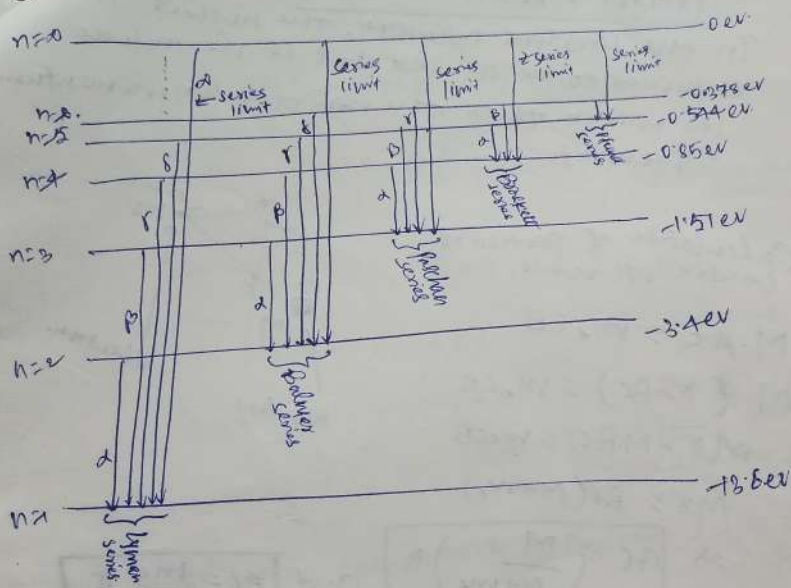 n=∞ 0 ev.
series limit
series limit
series limit
series limit
series limit
n=6. -0.378 ev
n=5 -0.544 ev
n=4 -0.85 ev
n=3 -1.51 ev
n=2 -3.4 ev
n=1 -13.6 ev
α
β
γ
δ
α
β
γ
δ
α
β
γ
α
β
Lyman series
Balmer series
Paschan series
Brackett series
Pfund series